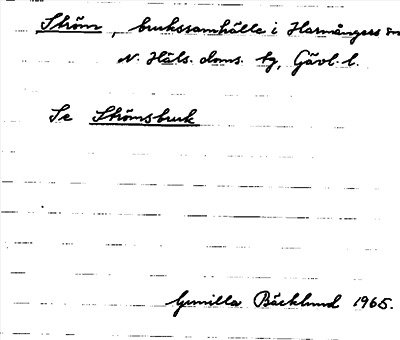 Ström, brukssamhälle i Harmångers sn
N. Häls. doms. hg, Gävl. l.
Se Strömsbruk
Gunilla Bäcklund 1965.